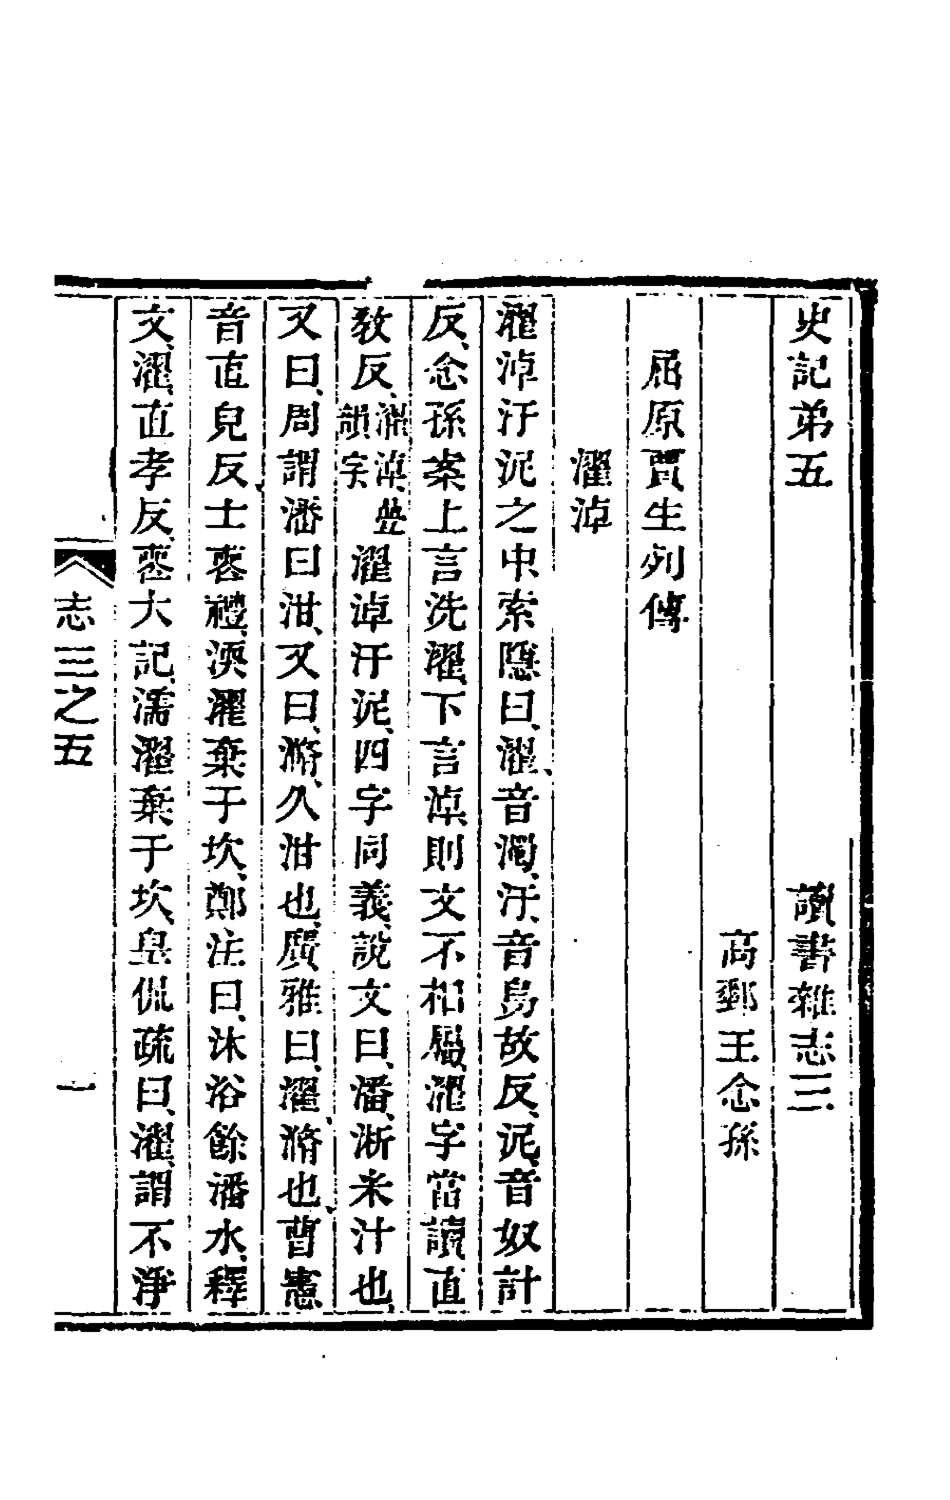 史記弟五 讀書雜志三
高郵王念孫
屈原賈生列傳
濯淖
濯淖汙泥之中索隱曰、濯、音濁、汙、音烏故反、泥、音奴計
反、念孫案上言洗濯、下言淖、則文不相屬、濯字當讀直
敎反、濯淖、疊韻字濯淖汙泥、四字同義、說文曰、潘、淅米汁也、
又曰、周謂潘曰泔、又曰、滫、久泔也、廣雅曰、濯、滫也、曹憲
音直皃反、士喪禮、渜濯棄于坎、鄭注曰、沐浴餘潘水、釋
文、濯、直孝反、喪大記、濡濯棄于坎、皇侃疏曰、濯、謂不淨
志三之五 一